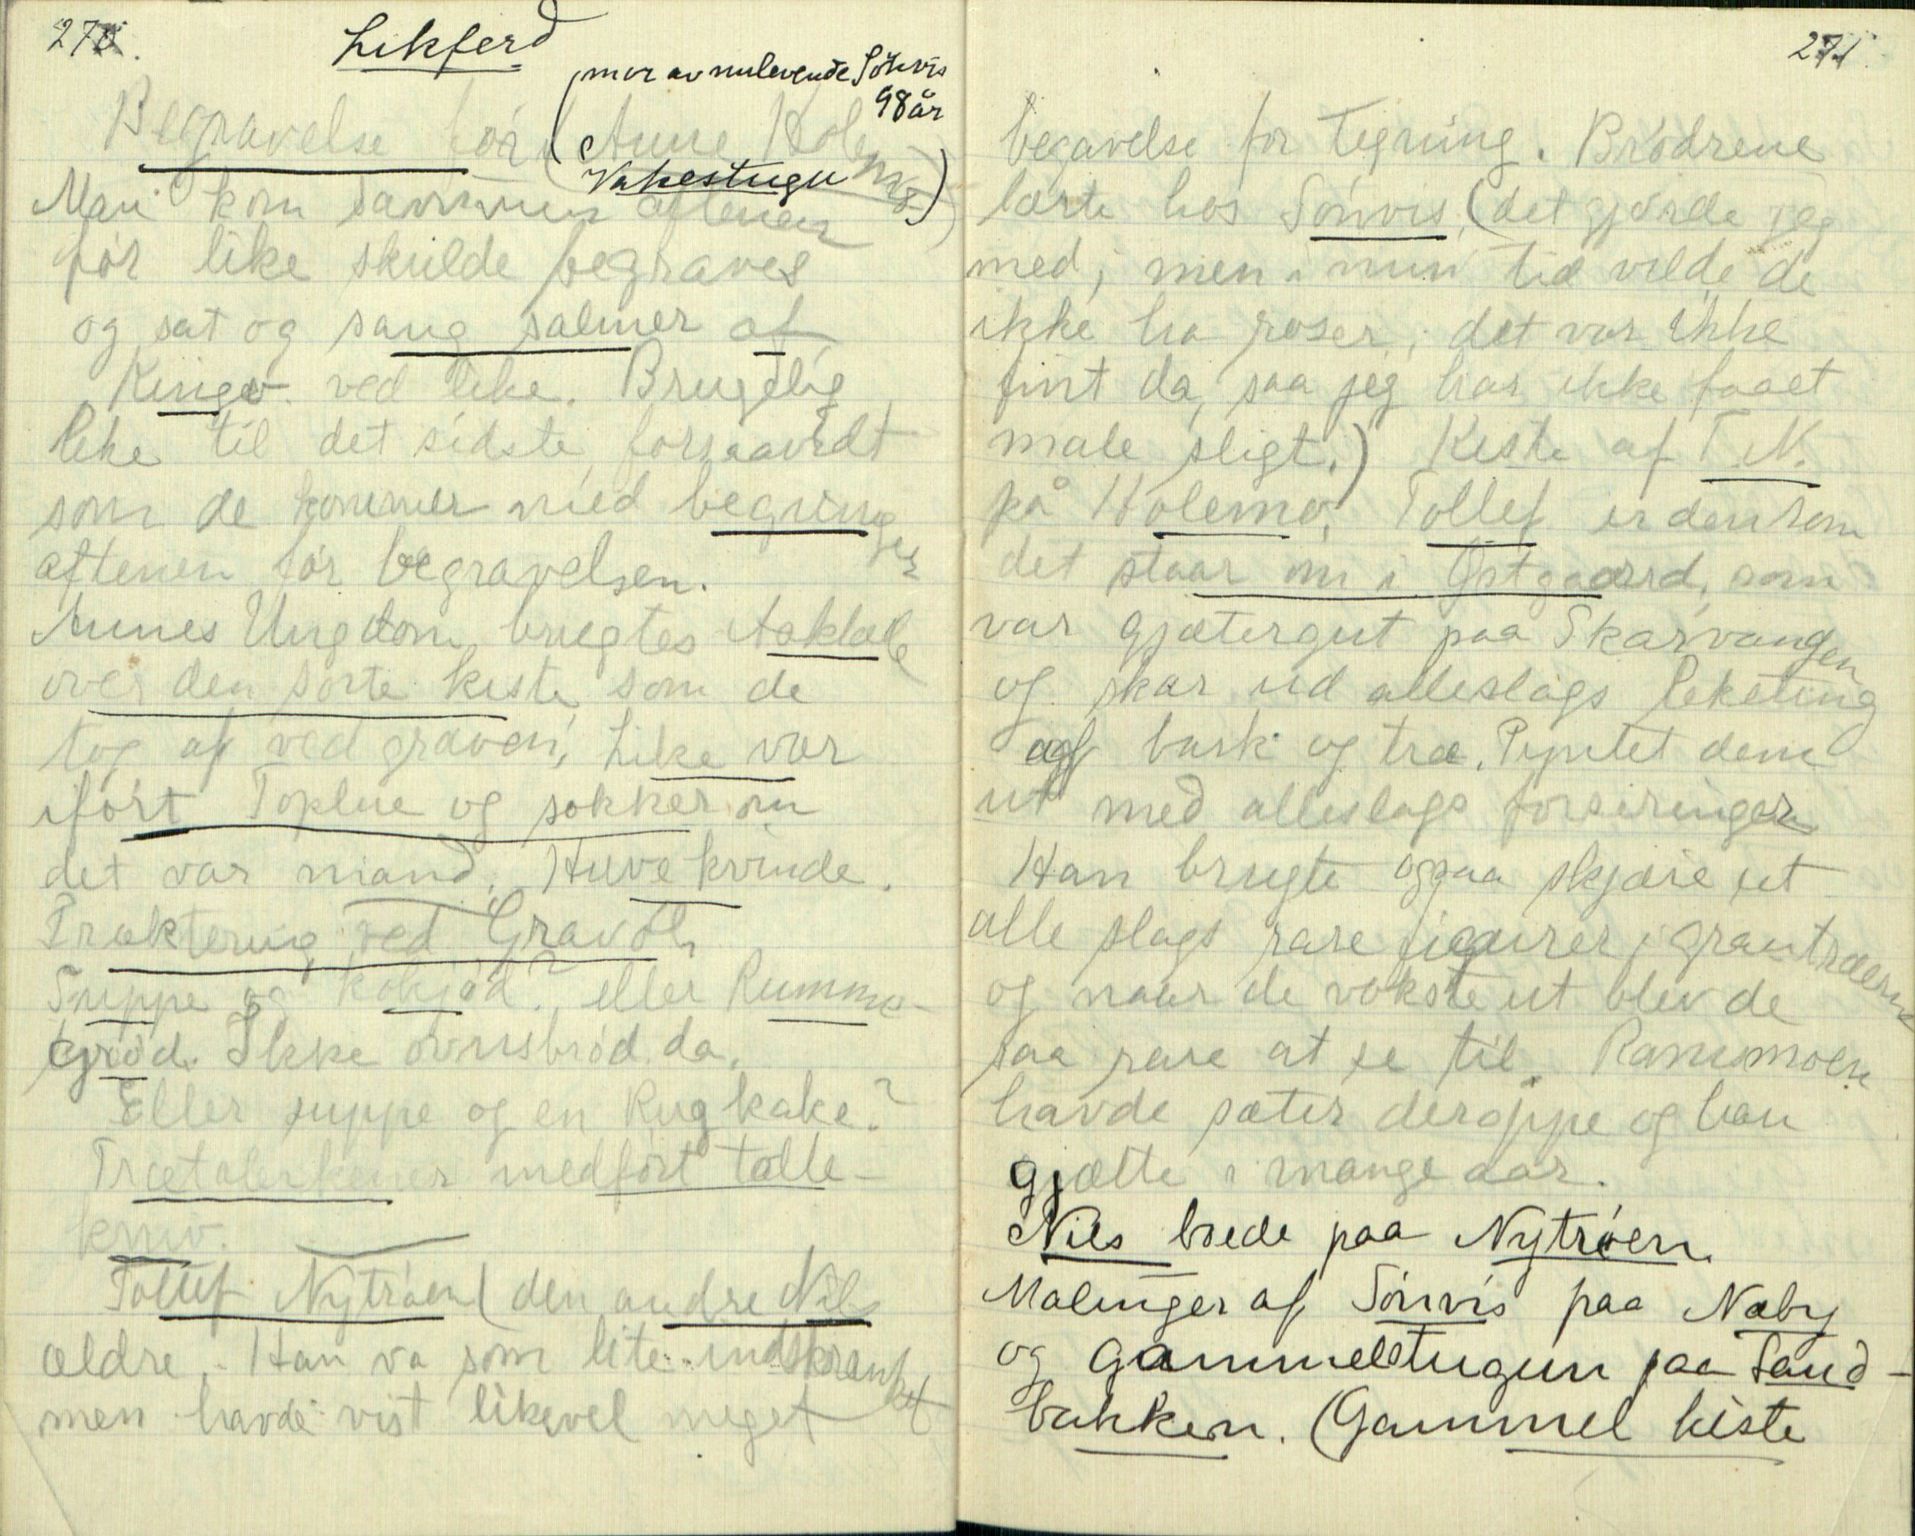 270.
Likferd
(mor av nulevende Sønvis
98 år
Begravelse før (Anne Holemo)
Vakestugu
Man kom sammen aftenen
før like skulde begraves
og sat og sang salmer af
Kingo ved like. Brugelig
like til det sidste, forsaavidt
som de kommer med begringer
aftenen før begravelsen.
Annes Ungdom brugtes Aaklæe
over den sorte kiste som de
tog af ved graven, Like var
iført Toplue og sokker om
det var mand. Huve kvinde.
Traktering ved Gravøl,
Suppe og kokjød? eller Rumme-
grød. Ikke ovnsbrød da.
Eller suppe og en Rugkake?
Trætalerkener medført tolle-
kniv.
Tollef Nytrøen (den andre Nils
ældre. Han va som lite indskrænket
men havde vist likevel meget
271
begavelse for tegning. Brødrene
lærte hos Sønvis, (det gjørde jeg
med, men i min tid vilde de
ikke ha roser, det var ikke
fint da, saa jeg har ikke faaet
male sligt.) Kiste af T. N.
på Holemo, Tollef er den som
det staar om i Østgaard, som
var gjætergut paa Skarvangen
og skar ud alleslags leketing
af bark og træ. Pyntet dem
ut med alleslags forsiringer
Han brugte ogsaa skjære ut
alle slags rare figurer i grantræerne
og naar de vokste ut blev de
saa rare at se til. Ramsmoen
havde sæter deroppe og han
gjætte i mange aar.
Nils boede paa Nytrøen.
Malinger af Sønvis paa Næby
og Gammelstugun paa Sand-
bakken. (Gammel kiste